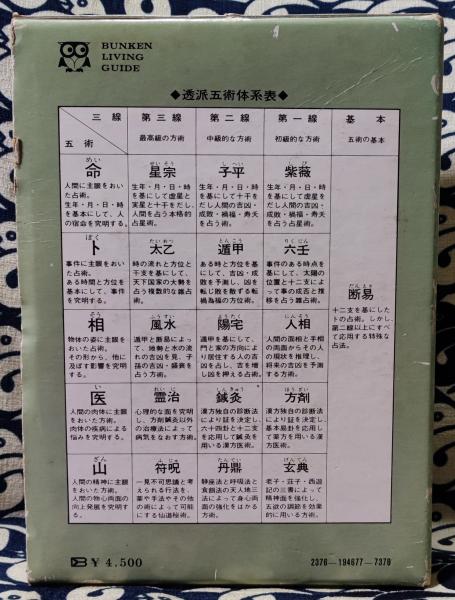 BUNKEN
LIVING
GUIDE
◆透派五術体系表◆
三線
五術
第三線
最高級の方術
第二線
中級的な方術
第一線
初級的な方術
基本
五術の基本
めい
命
人間に主眼をおい
た占術。
生年・月・日・時
を基本にして、人
の宿命を究明する。
せいそう
星宗
生年・月・日・時
を基にして虚星と
実星と十干をだし、
人間を占う本格的
占星術。
しへい
子平
生年・月・日・時
を基にして十干を
だし人間の吉凶・
成敗・禍福・寿夭
を占う。
しび
紫薇
生年・月・日・時
を基にして虚星を
だし人間の吉凶・
成敗・禍福・寿夭
を占う占星術。
ぼく
卜
事件に主眼をおい
た占術。
ある時間と方位を
基本にして、事件
を究明する。
たいおつ
太乙
時の流れと方位と
干支を基にして、
天下国家の大勢を
占う複数的な雑占
術。
とんこう
遁甲
ある時と方位を基
にして、吉凶・成
敗を予測し、凶を
転じ敗を救う転
禍為福の方位術。
りくじん
六壬
事件のある時点を
基にして、太陽の
位置と十二支によ
って事の成否と推
移を占う雑占術。
だんえき
断易
十二支を基にし
たトの占術。しかし、
第二線以上にすべ
て応用する特殊な
占法。
そう
相
物体の姿に主眼を
おいた占術。
その形から、他に
及ぼす影響を究明
する。
ふうすい
風水
遁甲と断易によっ
て、地勢と木の流
れの吉凶を見、子
孫の吉凶・盛衰を
占う方術。
ようたく
陽宅
遁甲を基にして、
門と家の方向によ
り居住する人の吉
凶を占し、吉を増
し凶を押える占術。
にんそう
人相
人間の面相と手相
の両面からその人
の現状を推理し、
将来の吉凶を予測
する方術。
い
医
人間の肉体に主眼
をおいた方術。
肉体の疾病による
悩みを究明する。
れいじ
霊治
心理的な面を究明
し、方剤鍼灸以外
の治療法によって
病気をなおす方術。
しんきゅう
鍼灸
漢方独自の診断法
により証を決定し、
六十四卦と十二支
を応用して鍼灸を
用いる漢方医術。
ほうざい
方剤
漢方独自の診断法
により証を決定し、
基本易卦を応用し
て薬方を用いる漢
方医術。
ざん
山
人間の精神に主眼
をおいた方術。
人間の物心両面の
向上発展を究明する。
ふじゅ
符呪
一見不可思議と考
えられる行法を、
薬や手法やその他
の術によって可能
にする仙道秘術。
たんてい
丹鼎
静座法と呼吸法と
食餌法の天人地三
法によって身心両
面の強化をはかる
方術。
げんてん
玄典
老子・荘子・西遊
記の三書によって
精神面を強化し、
五欲の調節を効果
的に用いる方術。
¥4,500
2376—194677—7370